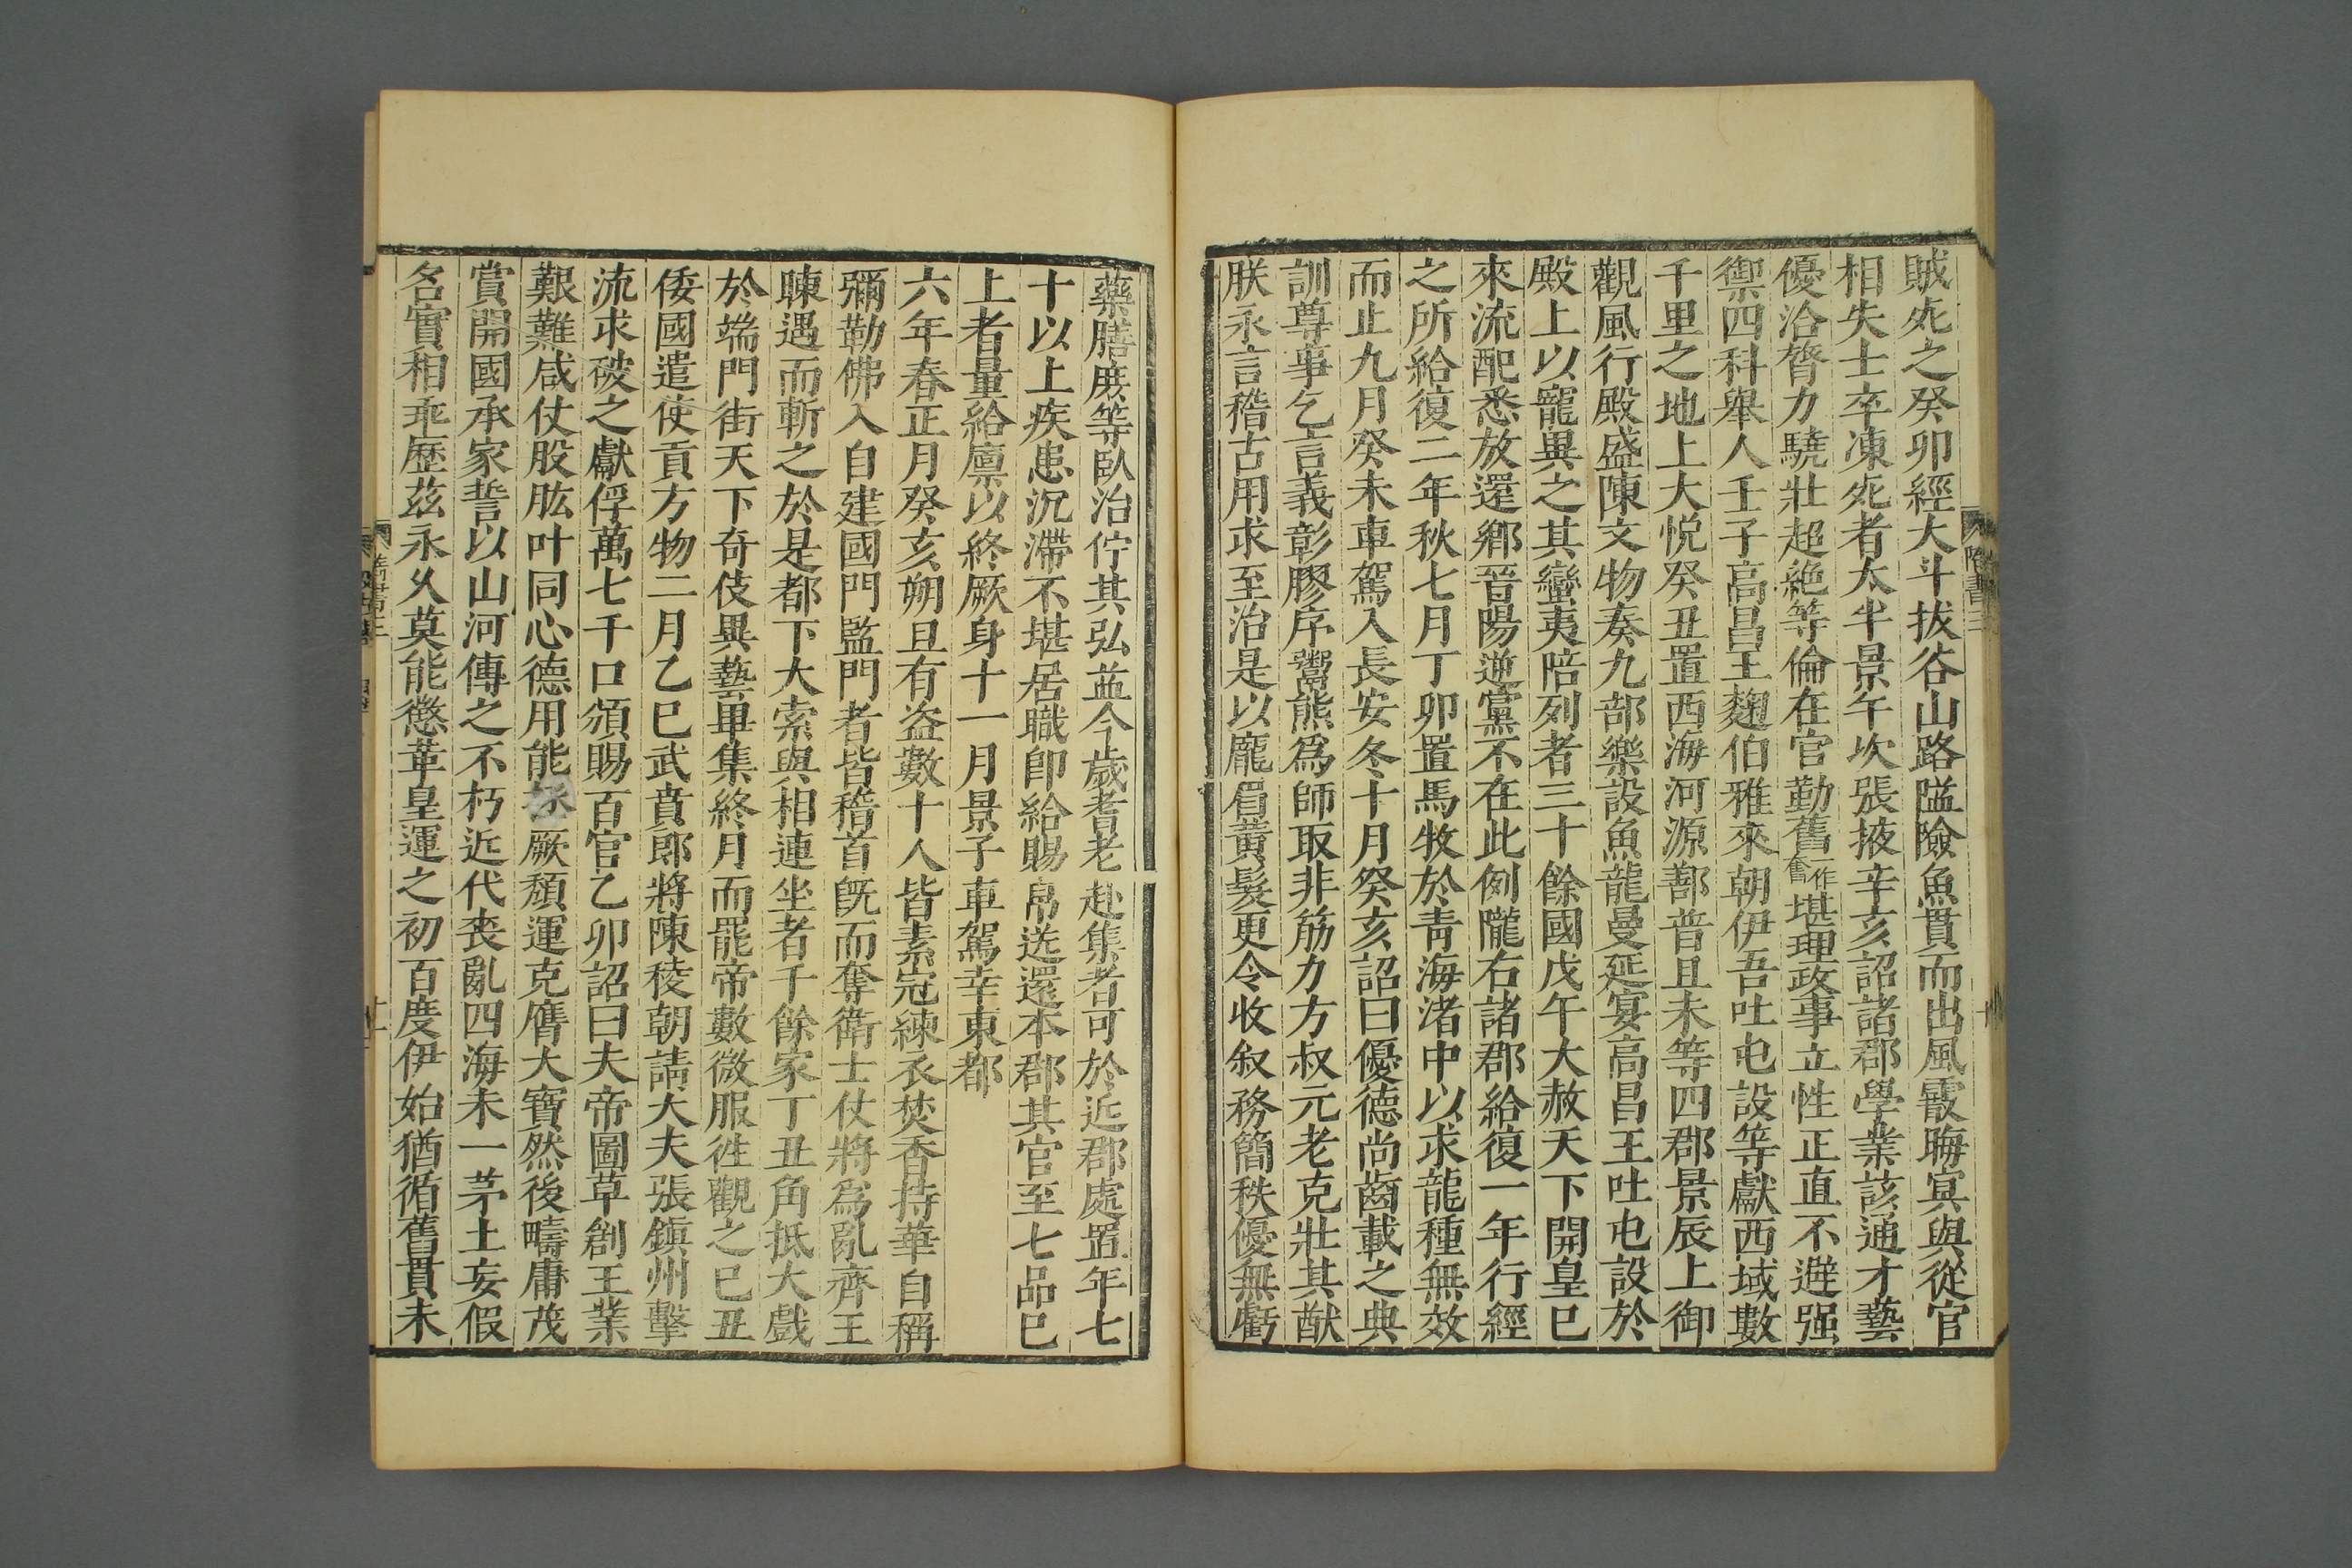 賊死之癸卯經大斗拔谷山路隘險魚貫而出風霰晦冥與從官
相失士卒凍死者太半景午次張掖辛亥詔諸郡學業該通才藝
優洽膂力驍壯超絶等倫在官勤舊一作奮堪理政事立性正直不避强
禦四科舉人壬子高昌王麴伯雅來朝伊吾吐屯設等獻西域數
千里之地上大悦癸丑置西海河源鄯善且末等四郡景辰上御
觀風行殿盛陳文物奏九部樂設魚龍曼延宴高昌王吐屯設於
殿上以寵異之其蠻夷陪列者三十餘國戊午大赦天下開皇已
來流配悉放還鄉晉陽逆黨不在此例隴右諸郡給復一年行經
之所給復二年秋七月丁卯置馬牧於青海渚中以求龍種無效
而止九月癸未車駕入長安冬十月癸亥詔曰優德尚齒載之典
訓尊事乞言義彰膠序鬻熊爲師取非筋力方叔元老克壯其猷
朕永言稽古用求至治是以龐眉黃髮更令收叙務簡秩優無虧
藥膳庶等臥治佇其弘益今歲耆老赴集者可於近郡處置年七
十以上疾患沉滯不堪居職卽給賜帛送還本郡其官至七品已
上者量給廩以終厥身十一月景子車駕幸東都
六年春正月癸亥朔旦有盜數十人皆素冠練衣焚香持華自稱
彌勒佛入自建國門監門者皆稽首旣而奪衛士仗將爲亂齊王
暕遇而斬之於是都下大索與相連坐者千餘家丁丑角抵大戲
於端門街天下奇伎異藝畢集終月而罷帝數微服往觀之己丑
倭國遣使貢方物二月乙巳武賁郎將陳稜朝請大夫張鎮州擊
流求破之獻俘萬七千口頒賜百官乙卯詔曰夫帝圖草創王業
艱難咸仗股肱叶同心德用能拯厥頹運克膺大寶然後疇庸茂
賞開國承家誓以山河傳之不朽近代喪亂四海未一茅土妄假
名實相乖歷茲永久莫能懲革皇運之初百度伊始猶循舊貫未